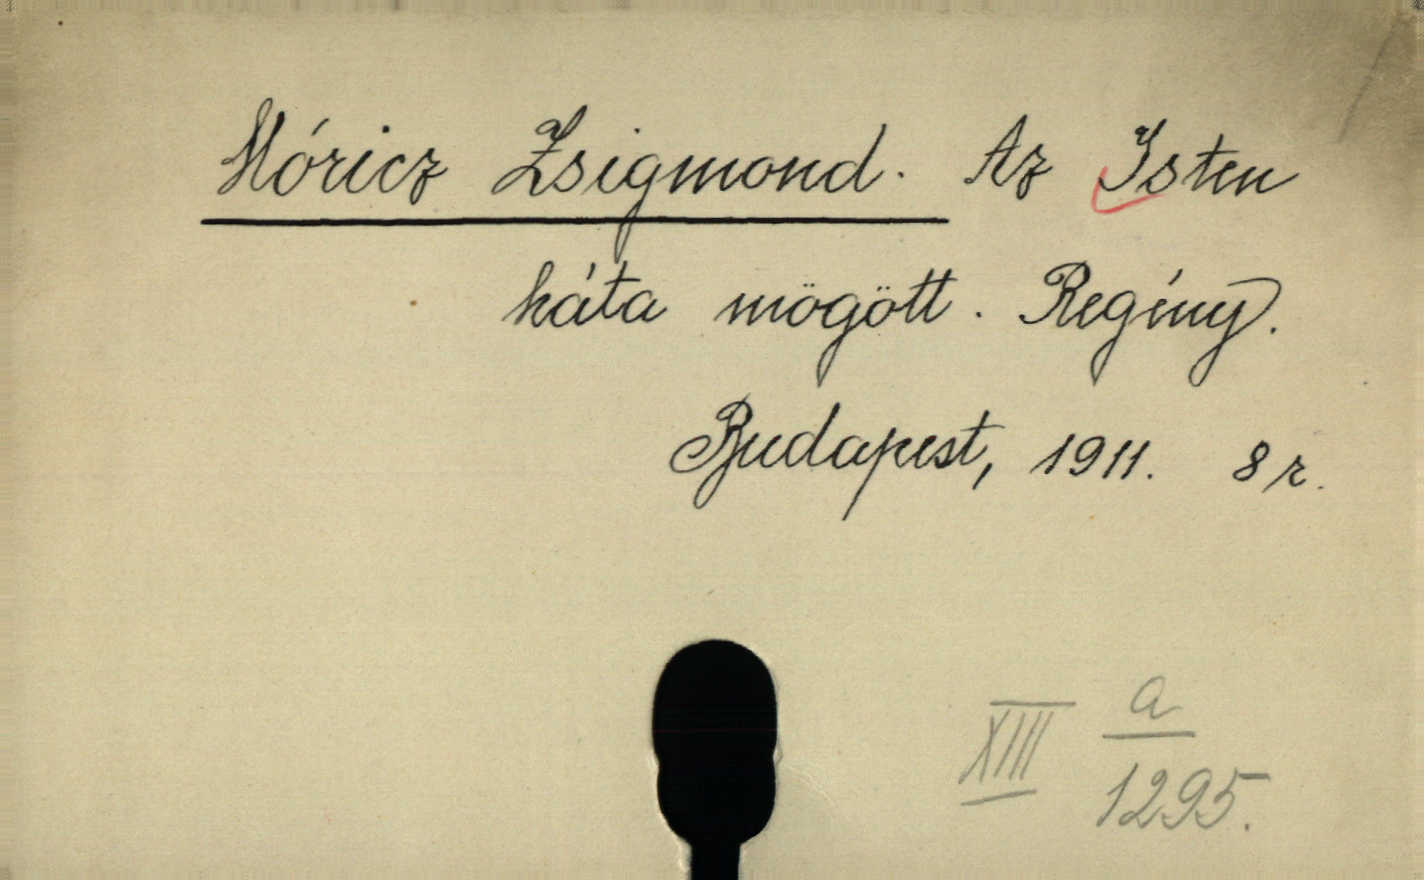 Móricz Zsigmond. Az Isten
háta mögött. Regény.
Budapest, 1911. 8 r.
XIII a
1295.